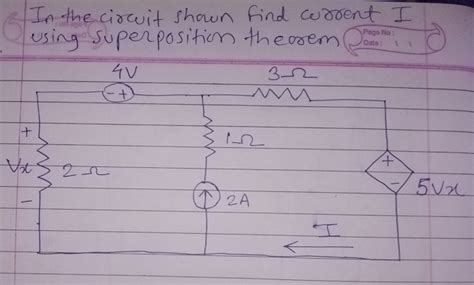 In the circuit shown find current I
using superposition theorem
Page No:
Date: 1 1
4V
- +
3Ω
+
Vx
2Ω
-
1Ω
2A
+
-
5Vx
I